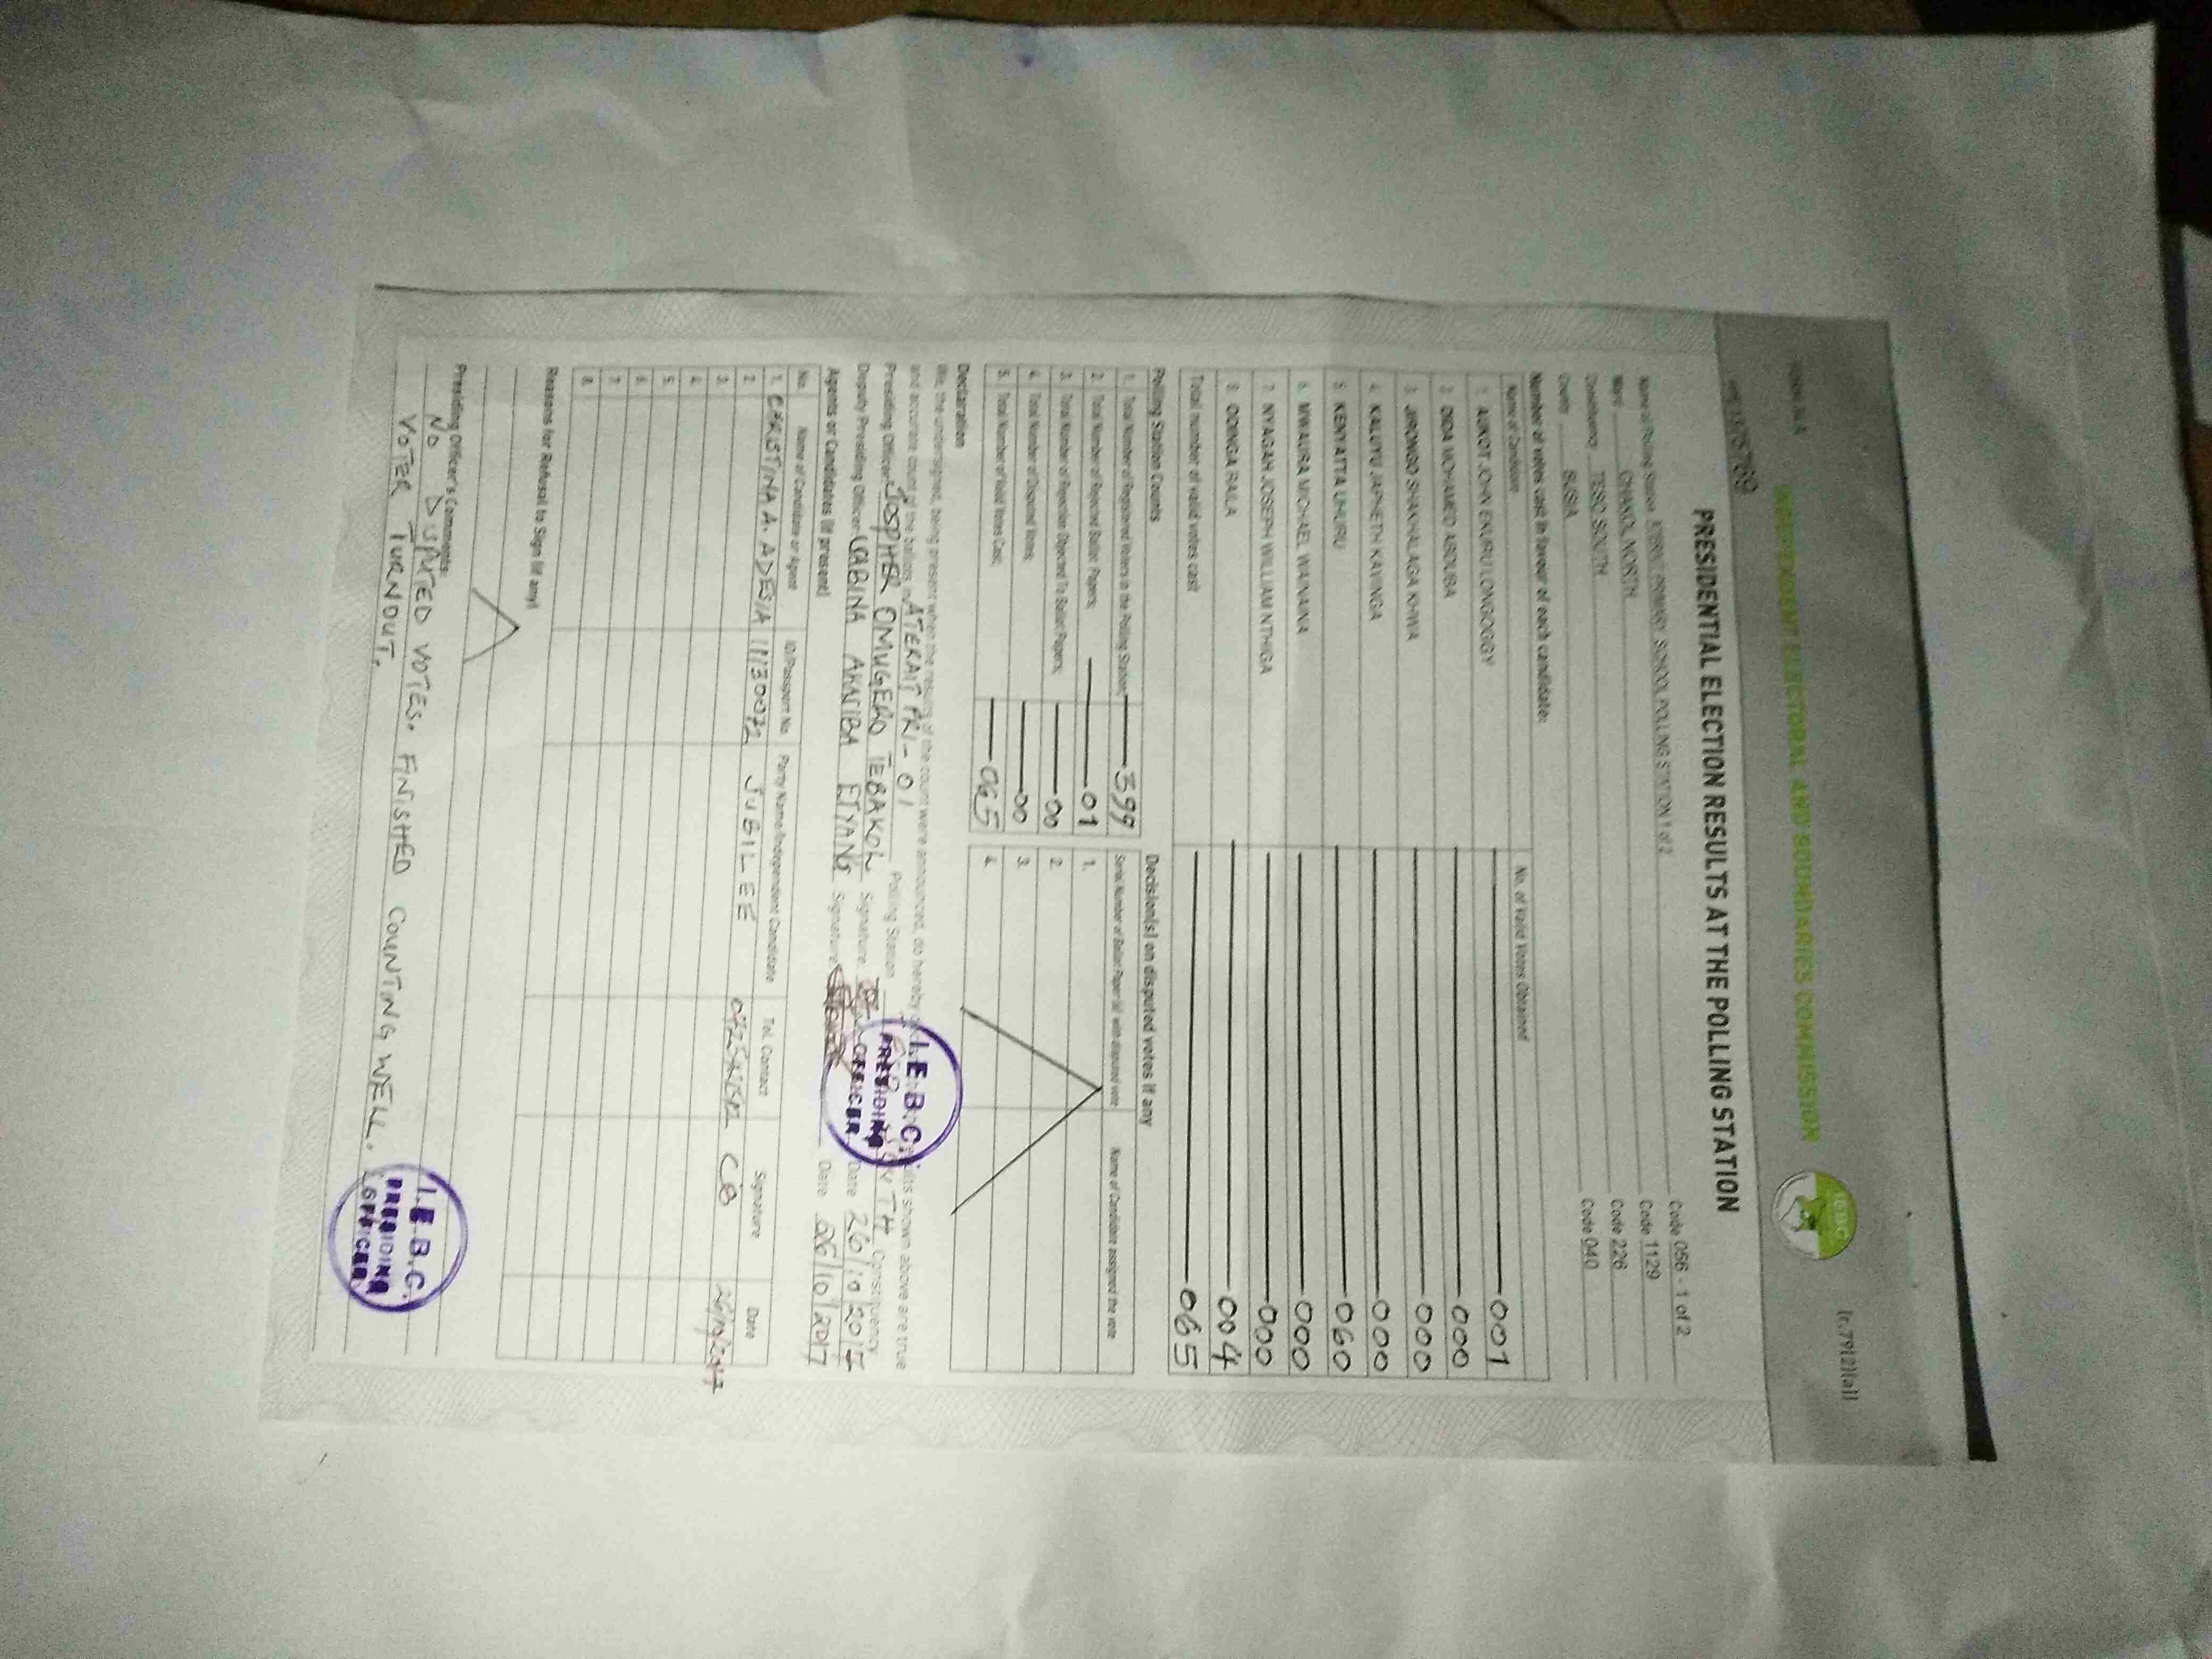 FORM 34 A
INDEPENDENT ELECTORAL AND BOUNDARIES COMMISSION
IEBC
(r.79(2)(a))
PRESIDENTIAL ELECTION RESULTS AT THE POLLING STATION
Name of Polling Station PRIMARY SCHOOL POLLING STATION 1 of 2 Code 056 - 1 of 2
Ward CHAKOL NORTH Code 1129
Constituency TESO SOUTH Code 226
County BUSIA Code 040
Number of votes cast in favour of each candidate:
Name of Candidate No. of Valid Votes Obtained
1 AUKOT JOHN EKURU LONGOGGY 001
2 DIDA MOHAMED ABDUBA 000
3 JIRONGO SHAKHALAGA KHWA 000
4 KALUYU JAPHETH KAVINGA 000
5 KENYATTA UHURU 060
6 MWAURA MICHAEL WAINAINA 000
7 NYAGAH JOSEPH WILLIAM NTHIGA 000
8 ODINGA RAILA 004
Total number of valid votes cast 065
Polling Station Counts
1. Total Number of Registered Voters in the Polling Station; 399
2. Total Number of Rejected Ballot Papers; 01
3. Total Number of Rejection Objected To Ballot Papers; 00
4. Total Number of Disputed Votes; 00
5. Total Number of Valid Votes Cast; 065
Decision(s) on disputed votes if any
Serial Number of Ballot Paper(s) with disputed vote Name of Candidate assigned the vote
1.
2.
3.
4.
Declaration
We, the undersigned, being present when the results of the count were announced, do hereby results shown above are true
and accurate count of the ballots in ATERAIT PRI - 01 Polling Station TH Constituency
Presiding Officer JOSPHER OMUGERO TEBAKOL Signature Date 26/10/2017
Deputy Presiding Officer SABINA AKANIBA ETYANG Signature Date 26/10/2017
I.E.B.C.
PRESIDING
OFFICER
Agents or Candidates (if present)
No. Name of Candidate or Agent ID/Passport No. Party Name/Independent Candidate Tel. Contact Signature Date
1. CHRISTINA A. ADESIA 11130072 JUBILEE CO 26/10/2017
2.
3.
4.
5.
6.
7.
8.
Reasons for Refusal to Sign (if any)
Presiding Officer's Comments:
NO DISPUTED VOTES. FINISHED COUNTING WELL.
VOTER TURNOUT.
I.E.B.C.
PRESIDING
OFFICER